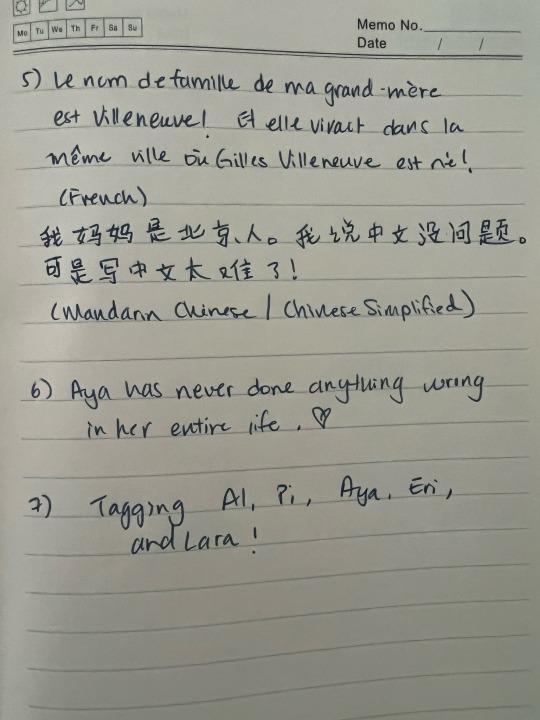 Mo Tu We Th Fr Sa Su
Memo No.
Date / /
5) Le nom de famille de ma grand-mère
est Villeneuve! Et elle vivait dans la
même ville où Gilles Villeneuve est né!
(French)
我妈妈是北京人。我说中文没问题。
可是写中文太难了!
(Mandarin Chinese / Chinese Simplified)
6) Aya has never done anything wrong
in her entire life. ♡
7) Tagging Al, Pi, Aya, Eri,
and Lara!